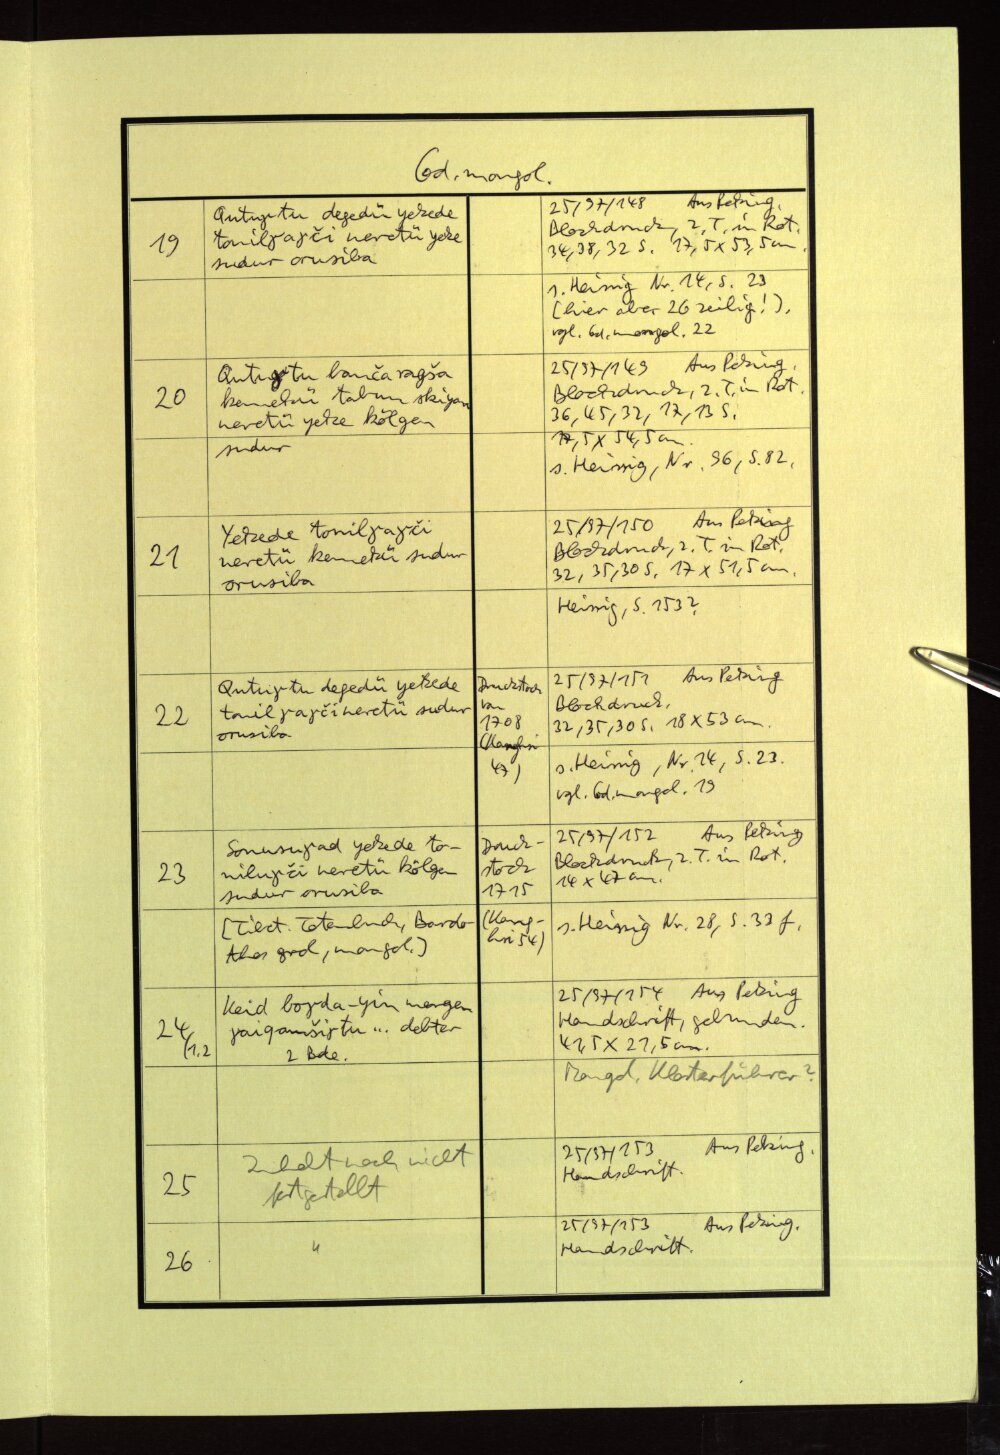 Cod. mongol.
19
Qutuγtu degedü yekede
tonilγaγči neretü yeke
sudur orusiba
25/97/148 Aus Peking.
Blockdruck, z. T. in Rot.
34, 38, 32 S. 17,5 x 53,5 cm
s. Heissig Nr. 14, S. 23
(hier aber 26 zeilig!),
vgl. Cod. mongol. 22
20
Qutuγtu banča ragša
kemekü tabun skiyan
neretü yeke kölgen
sudur
25/97/149 Aus Peking.
Blockdruck, z. T. in Rot.
36, 45, 32, 17, 13 S.
17,5 x 54,5 cm.
s. Heissig, Nr. 96, S. 82.
21
Yekede tonilγaγči
neretü kemekü sudur
orusiba
25/97/150 Aus Peking
Blockdruck, z. T. in Rot.
32, 35, 30 S. 17 x 51,5 cm.
Heissig, S. 153?
22
Qutuγtu degedü yekede
tonilγaγči neretü sudur
orusiba
Druckstock
von
1708
(Kanghsi
47)
25/97/151 Aus Peking
Blockdruck.
32, 35, 30 S. 18 x 53 cm.
s. Heissig, Nr. 14, S. 23.
vgl. Cod. mongol. 19
23
Sonusuγad yekede to-
niluγči neretü kölgen
sudur orusiba
[Tibet. Totenbuch, Bardo-
thos grol, mongol.]
Druck-
stock
1715
(Kang-
hsi 54)
25/97/152 Aus Peking
Blockdruck, z. T. in Rot.
14 x 47 cm.
s. Heissig Nr. 28, S. 33 f.
24
/1.2
Keid boγda-yin mergen
γaiqamšiγtu ... debter
2 Bde.
25/97/154 Aus Peking
Handschrift, gebunden.
41,5 x 21,5 cm.
Mongol. Klosterführer?
25
Inhalt noch nicht
festgestellt
25/97/153 Aus Peking.
Handschrift.
26
"
25/97/153 Aus Peking.
Handschrift.